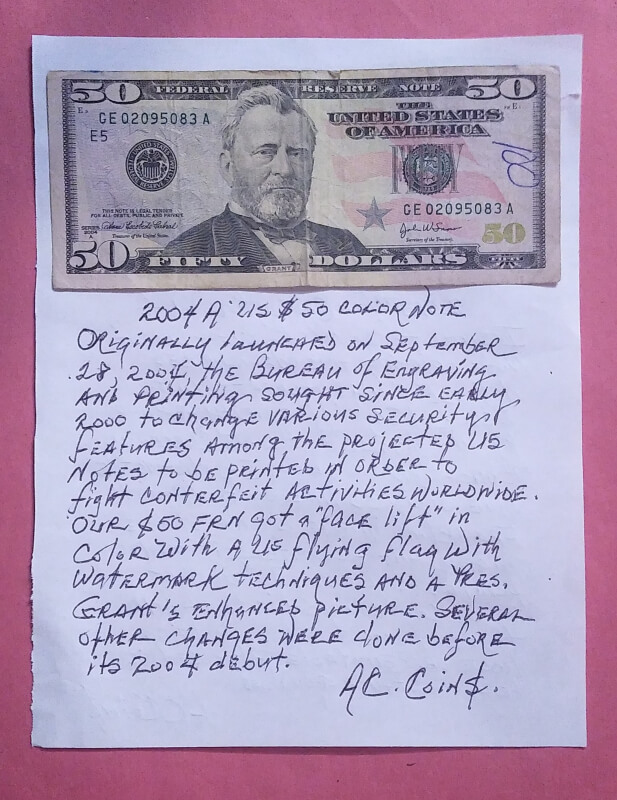 50 FEDERAL RESERVE NOTE 50
GE 02095083 A
E5
THE
UNITED STATES
OF AMERICA
THIS NOTE IS LEGAL TENDER
FOR ALL DEBTS, PUBLIC AND PRIVATE
SERIES
2004
A
Treasurer of the United States.
GE 02095083 A
Secretary of the Treasury.
50
50 FIFTY GRANT DOLLARS
2004 A US $50 COLOR NOTE
ORIGINALLY LAUNCHED ON September
28, 2004, the BUREAU of ENGRAVING
AND PRINTING SOUGHT SINCE EARLY
2000 to CHANGE VARIOUS SECURITY
FEATURES AMONG the PROJECTED US
NOTES to be PRINTED IN ORDER to
fight CONTERFEIT ACTIVITIES WORLDWIDE.
OUR $50 FRN GOT a "FACE lift" in
COLOR With A US flying flag With
WATERMARK techniques AND A PRES.
GRANT'S ENHANCED picture. SEVERAL
other CHANGES WERE done before
its 2004 debut.
AC. Coin$.